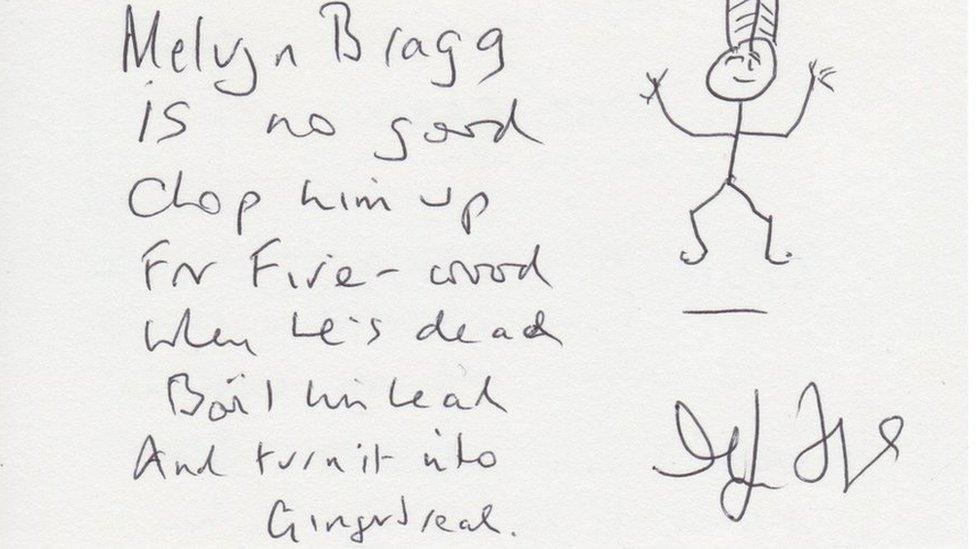 Melvyn Bragg
is no good
Chop him up
For Fire-wood
When he's dead
Boil his head
And turn it into
Gingerbread.